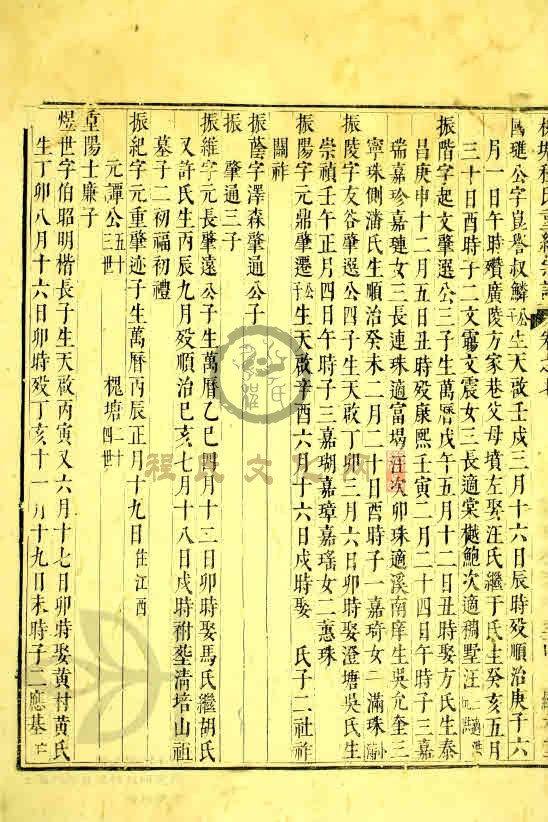 國璡公字崑嵒叔鱗公子生天啟壬戌三月十六日辰時殁順治庚子六
月一日午時殯廣陵方家巷父母墳左娶汪氏繼于氏生癸亥五月
三十日酉時子二文靏文震女三長適棠樾鮑次適稠墅汪
振階字起文肇選公三子生萬曆戊午五月十二日丑時娶方氏生泰
昌庚申十二月五日丑時殁康熙壬寅二月二十四日午時子三嘉
瑞嘉珍嘉璉女三長連珠適富堨汪次卯珠適溪南庠生吳允奎三
寧珠側潘氏生順治癸未二月二十日酉時子一嘉琦女二滿珠
振陵字友谷肇選公四子生天啟丁卯三月六日卯時娶澄塘吳氏生
崇禎壬午正月四日午時子三嘉瑚嘉璋嘉瑤女二蕙珠
振陽字元鼎肇選公子生天啟辛酉六月十六日戌時娶 氏子二社祚
關祚
振蔭字澤森肇通公子
振 肇通三子
振維字元長肇遠公子生萬曆乙巳四月十二日卯時娶馬氏繼胡氏
又許氏生丙辰九月殁順治己亥七月十八日戌時祔塟清培山祖
墓子二初福初禮
振紀字元重肇迹子生萬曆丙辰正月十九日住江西
元譚公五十三世 槐塘二十四世
重陽士廉子
煜世字伯昭明楷長子生天啟丙寅又六月十七日卯時娶黃村黃氏
生丁卯八月十六日卯時殁丁亥十一月十九日未時子二應基
程氏文化網